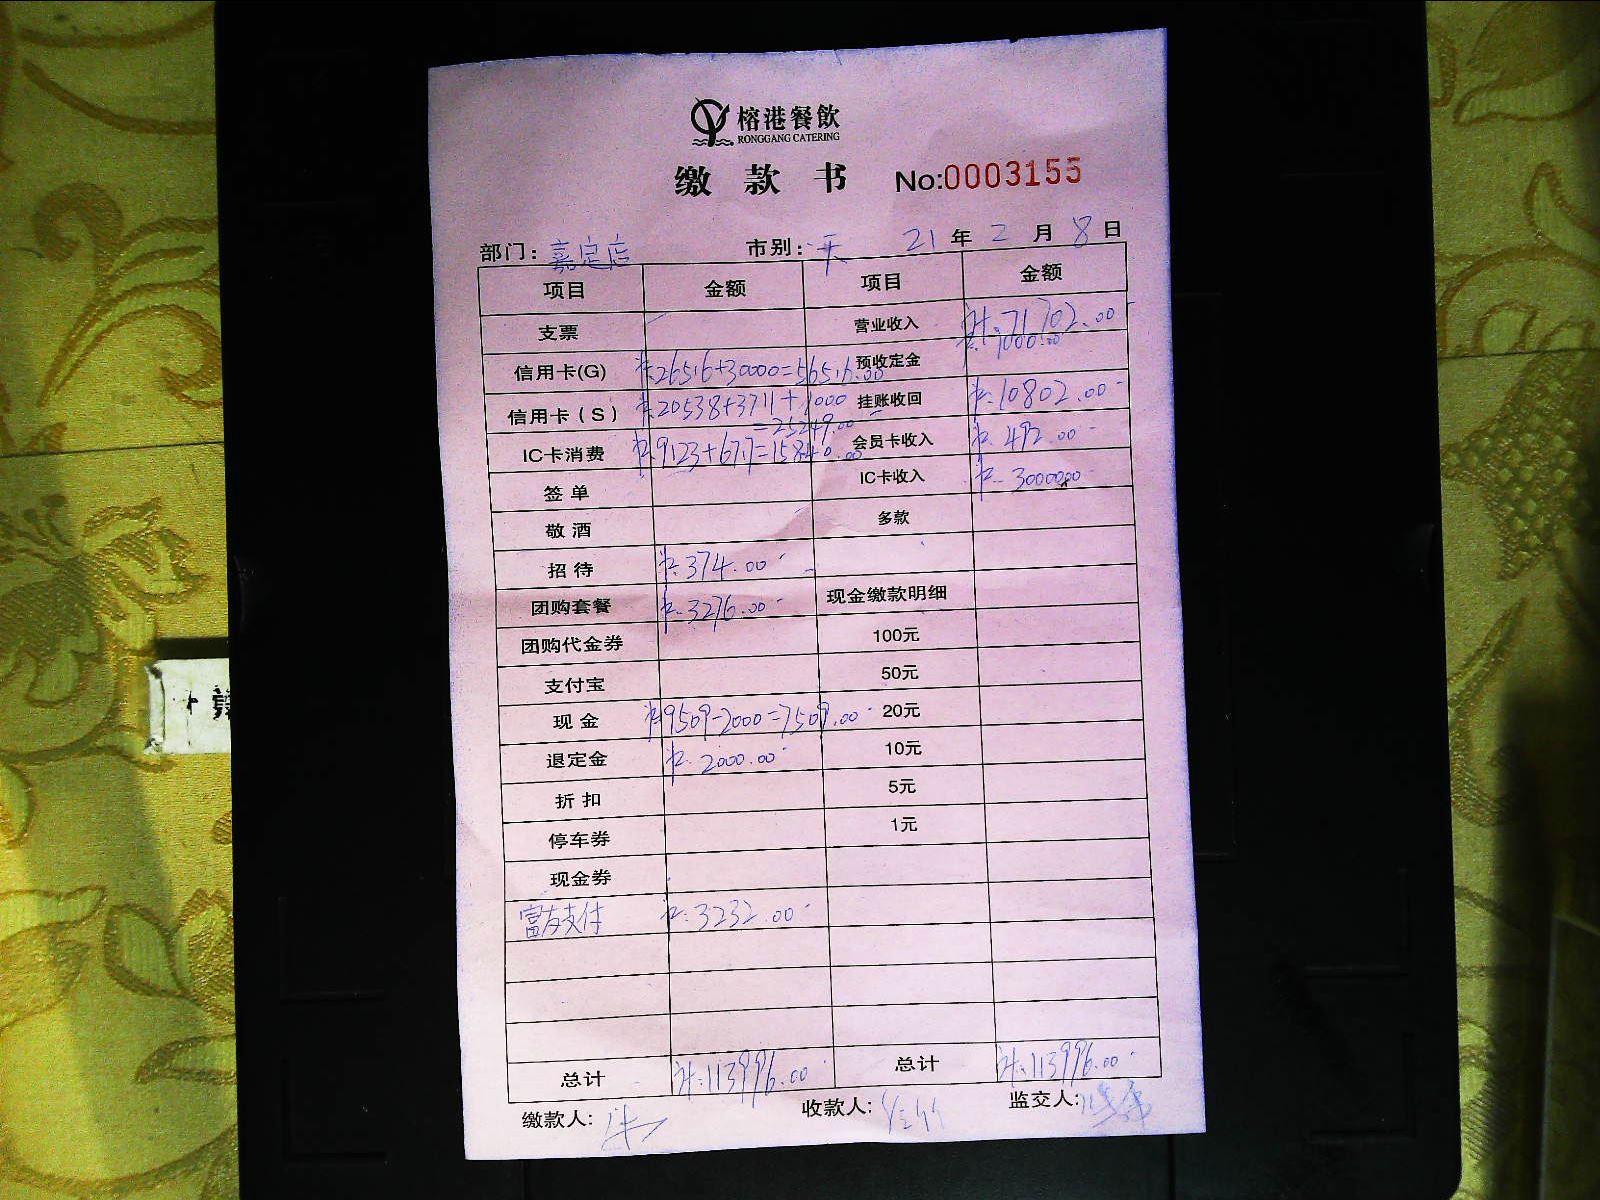 榕港餐飲
RONGGANG CATERING
缴款书 No:0003155
部门: 嘉定店 市别: 天 21年2月8日
项目 金额 项目 金额
支票 营业收入 计:71702.00
信用卡(G) 计:26516+30000=56516.00 预收定金 计:1000.00
信用卡(S) 计:20538+3711+1000 挂账收回 计:10802.00
=25249.00
IC卡消费 计:9123+6717=15840.00 会员卡收入 计:492.00
签单 IC卡收入 计:30000.00
敬酒 多款
招待 计:374.00
团购套餐 计:3276.00 现金缴款明细
团购代金券 100元
支付宝 50元
现金 计:9509-2000=7509.00 20元
退定金 计:2000.00 10元
折扣 5元
停车券 1元
现金券
富友支付 计:3232.00
总计 计:113996.00 总计 计:113996.00
缴款人: 收款人: 监交人: